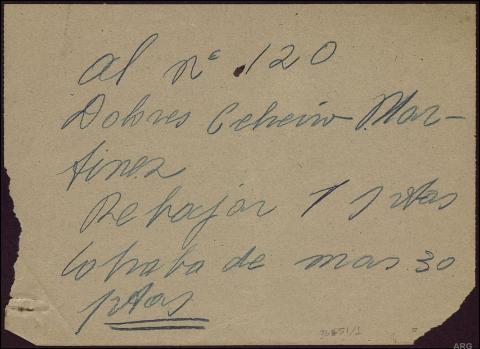 Al nº 120
Dolores Ceheiro Mar-
tinez
Rebajar 1 ptas
Cobraba de mas 30
ptas
ARG